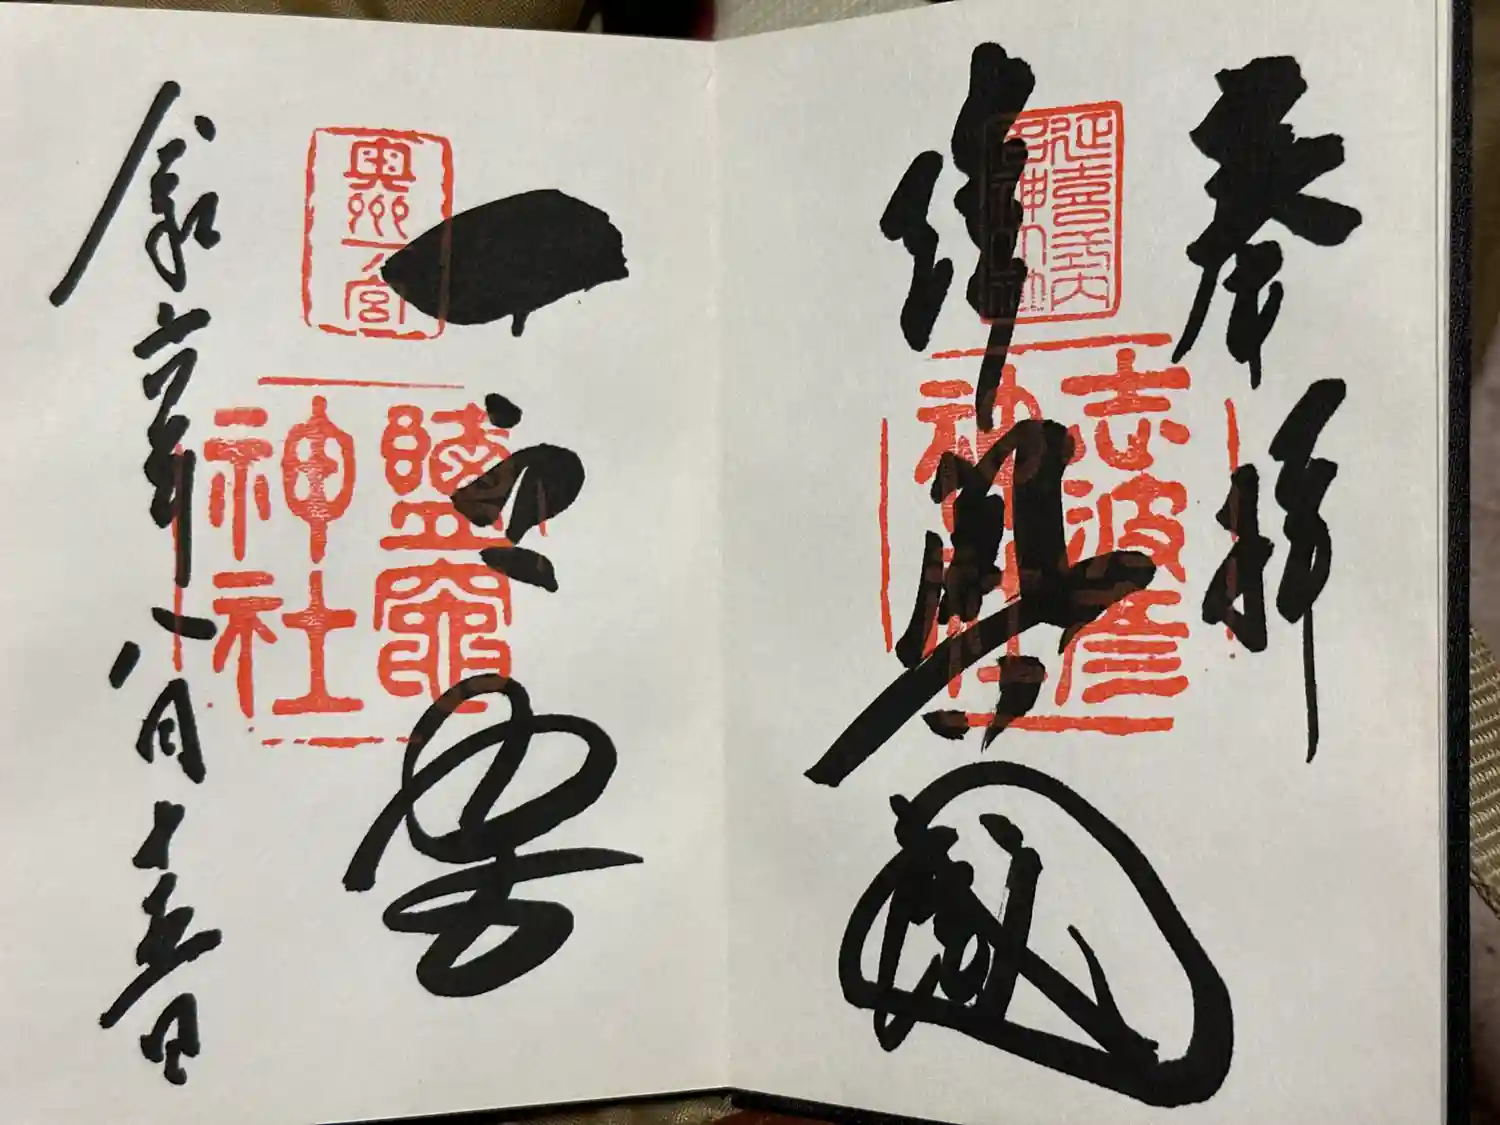 奉拝
延喜式内
名神大社
志波彦
神社
陸奥國
一之宮
奥州一宮
鹽竈
神社
令和六年八月十五日